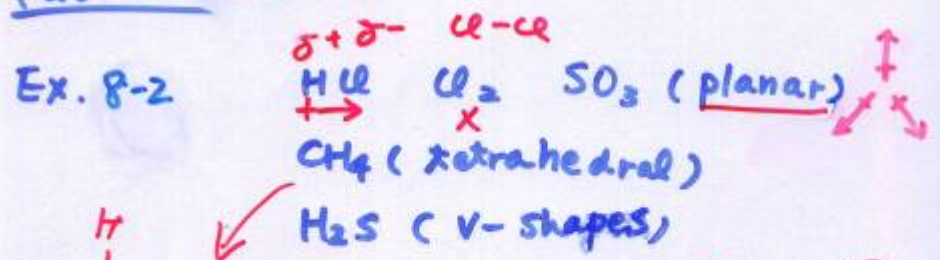 δ+ δ- Cl-Cl
Ex. 8-2 HCl Cl2 SO3 (planar)
x
CH4 (tetrahedral)
H2S (V-shapes)
H